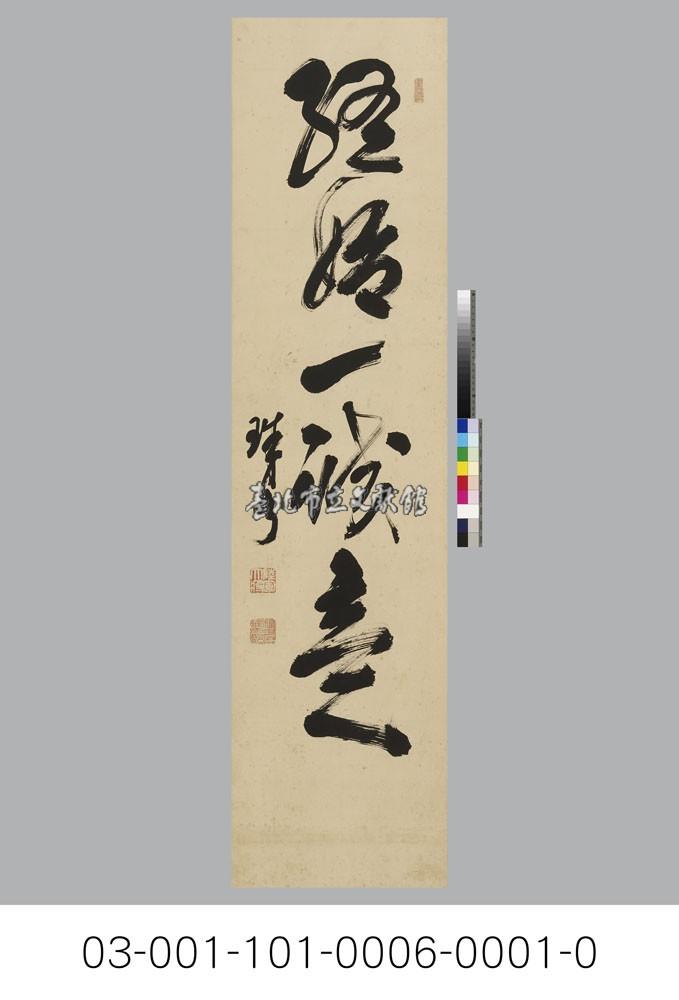 終始一誠意
臺北市立文獻館
03-001-101-0006-0001-0